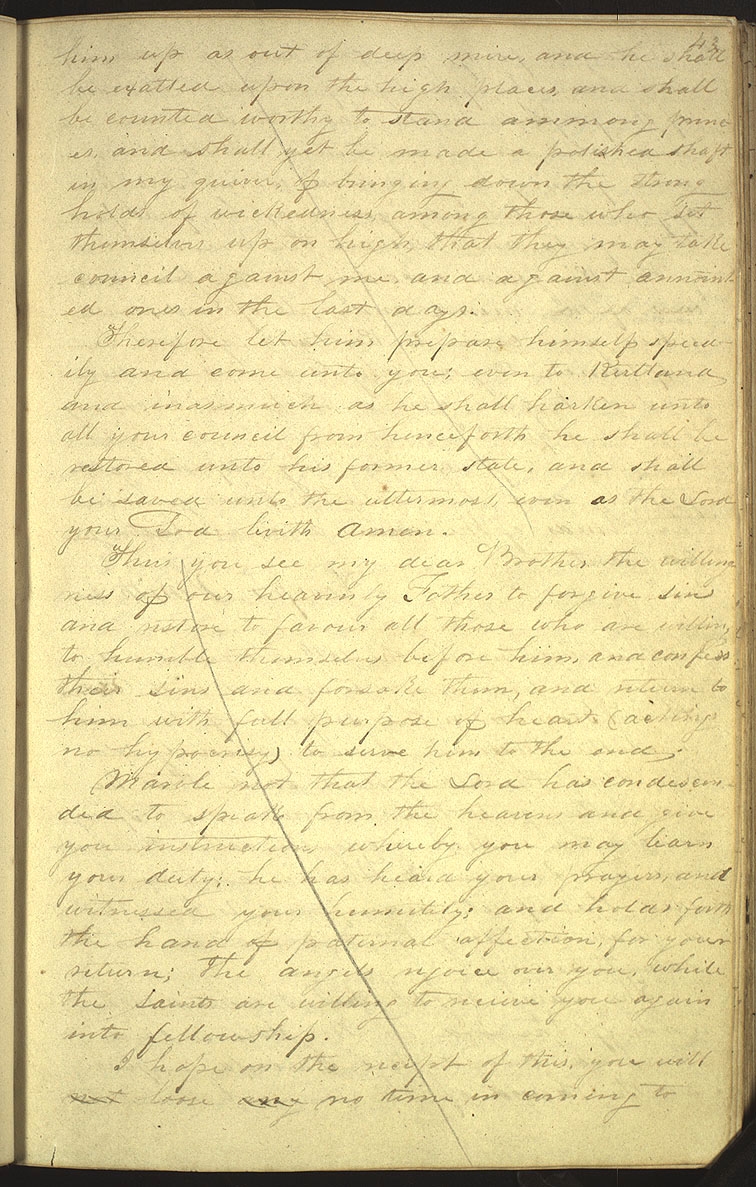 43
him up as out of deep mire, and he shall
be exalted upon the high places, and shall
be counted worthy to stand ammong princ-
es, and shall yet be made a polished shaft
in my quiver, of bringing down the strong
holds of wickedness, among those who set
themselves up on high, that they may take
council against me, and against annoint-
ed ones in the last days.
Therefore let him prepare himself speed-
ily and come unto you; even to Kirtland
and inasmuch as he shall harken unto
all your council from henceforth he shall be
restored unto his former state, and shall
be saved unto the uttermost, even as the Lord
your God livith Amen.
Thus you see my dear Brother the willing
ness of our heavenly Father to forgive sins
and restore to favour all those who are willing
to humble themselves before him, and confess
their sins and forsake them, and return to
him with full purpose of heart (acting
no hypocrisy) to serve him to the end.
Marvle not that the Lord has condescen-
ded to speak from the heavens and give
you instructions whereby you may learn
your duty; he has heard your prayers, and
witnessed your humility; and holds forth
the hand of paternal affection, for your
return; the angels rejoice over you, while
the saints are willing to recieve you again
into fellowship.
I hope on the recipt of this, you will
not loose any no time in coming to